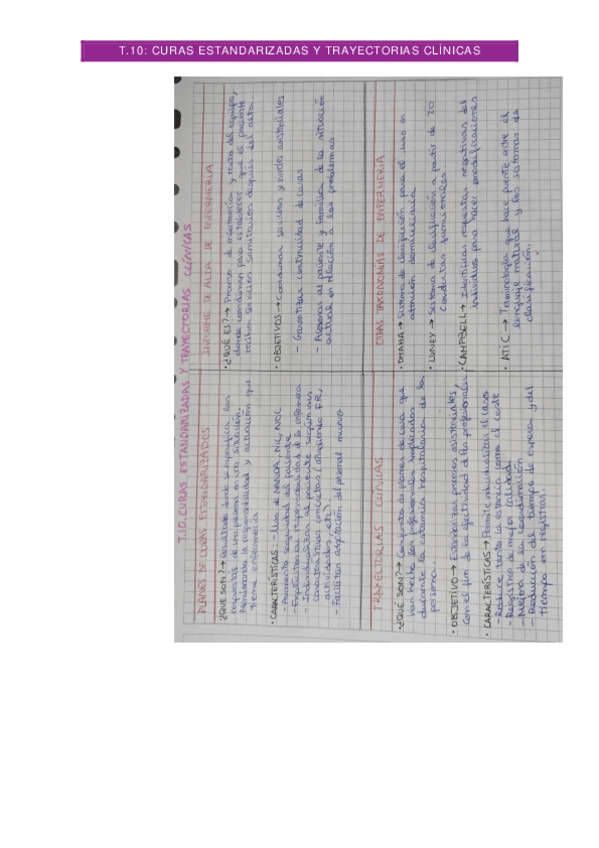 T.10: CURAS ESTANDARIZADAS Y TRAYECTORIAS CLÍNICAS
T.10. CURAS ESTANDARIZADAS Y TRAYECTORIAS CLÍNICAS
PLANES DE CURAS ESTANDARIZADOS
· ¿QUÉ SON? → Resultado donde se especifica las
respuestas de una persona en una situación.
la responsabilidad y actuación que
tiene enfermería
· CARACTERÍSTICAS: - Uso de NANDA, NIC, NOC
- Aumenta seguridad del paciente
- responsabilidad de la enfermera
- al paciente según sus
características concretas (añadiendo FR,
actividades, etc)
- Facilitan adaptación del personal nuevo
INFORME DE ALTA DE ENFERMERÍA
· ¿QUÉ ES? → Proceso de información y resto del equipo,
donde para establecer que el paciente
reciba servicios sanitarios después del alta.
· OBJETIVOS → Coordinar servicios y niveles asistenciales
- Garantizar continuidad de curas
- Asesorar al paciente y familia de la situación
actual en relación a sus problemas.
TRAYECTORIAS CLÍNICAS
· ¿QUÉ SON? → Conjunto de planes de cura que
han hecho los profesionales implicados
durante la estancia hospitalaria de la
persona.
· OBJETIVO → Estandarizar procesos asistenciales,
con el fin de la efectividad de los profesionales
· CARACTERÍSTICAS → Permite individualizar el caso
- Reduce tanto la estancia como el coste
- Registros de mejor calidad
- Mejora de la coordinación
- Reducción del tiempo de espera y del
tiempo en registrar.
OTRAS TAXONOMÍAS DE ENFERMERÍA
· OMAHA → Sistema de clasificación para el uso en
atención domiciliaria
· LUNEY → Sistema de clasificación a partir de 20
conductas funcionales
· CAMPBELL → Identifican respuestas negativas del
individuo para hacer modificaciones
· ATIC → Terminología que hace puente entre el
lenguaje natural y los sistemas de
clasificación.